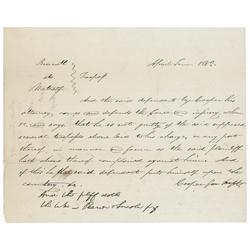 April Term 184
Trespass
And the said defendant by Cooper his
attorney, comes and defends the force and injury when
&c and says that he is not guilty of the said supposed
several trespasses above laid to his charge or any part
thereof in manner & form as the said Plaintiff
hath above thereof complained against him And
of this he the said defendant puts himself upon the
country &c
Cooper for Deft
And the plff doth
the like
Lincoln p.q.